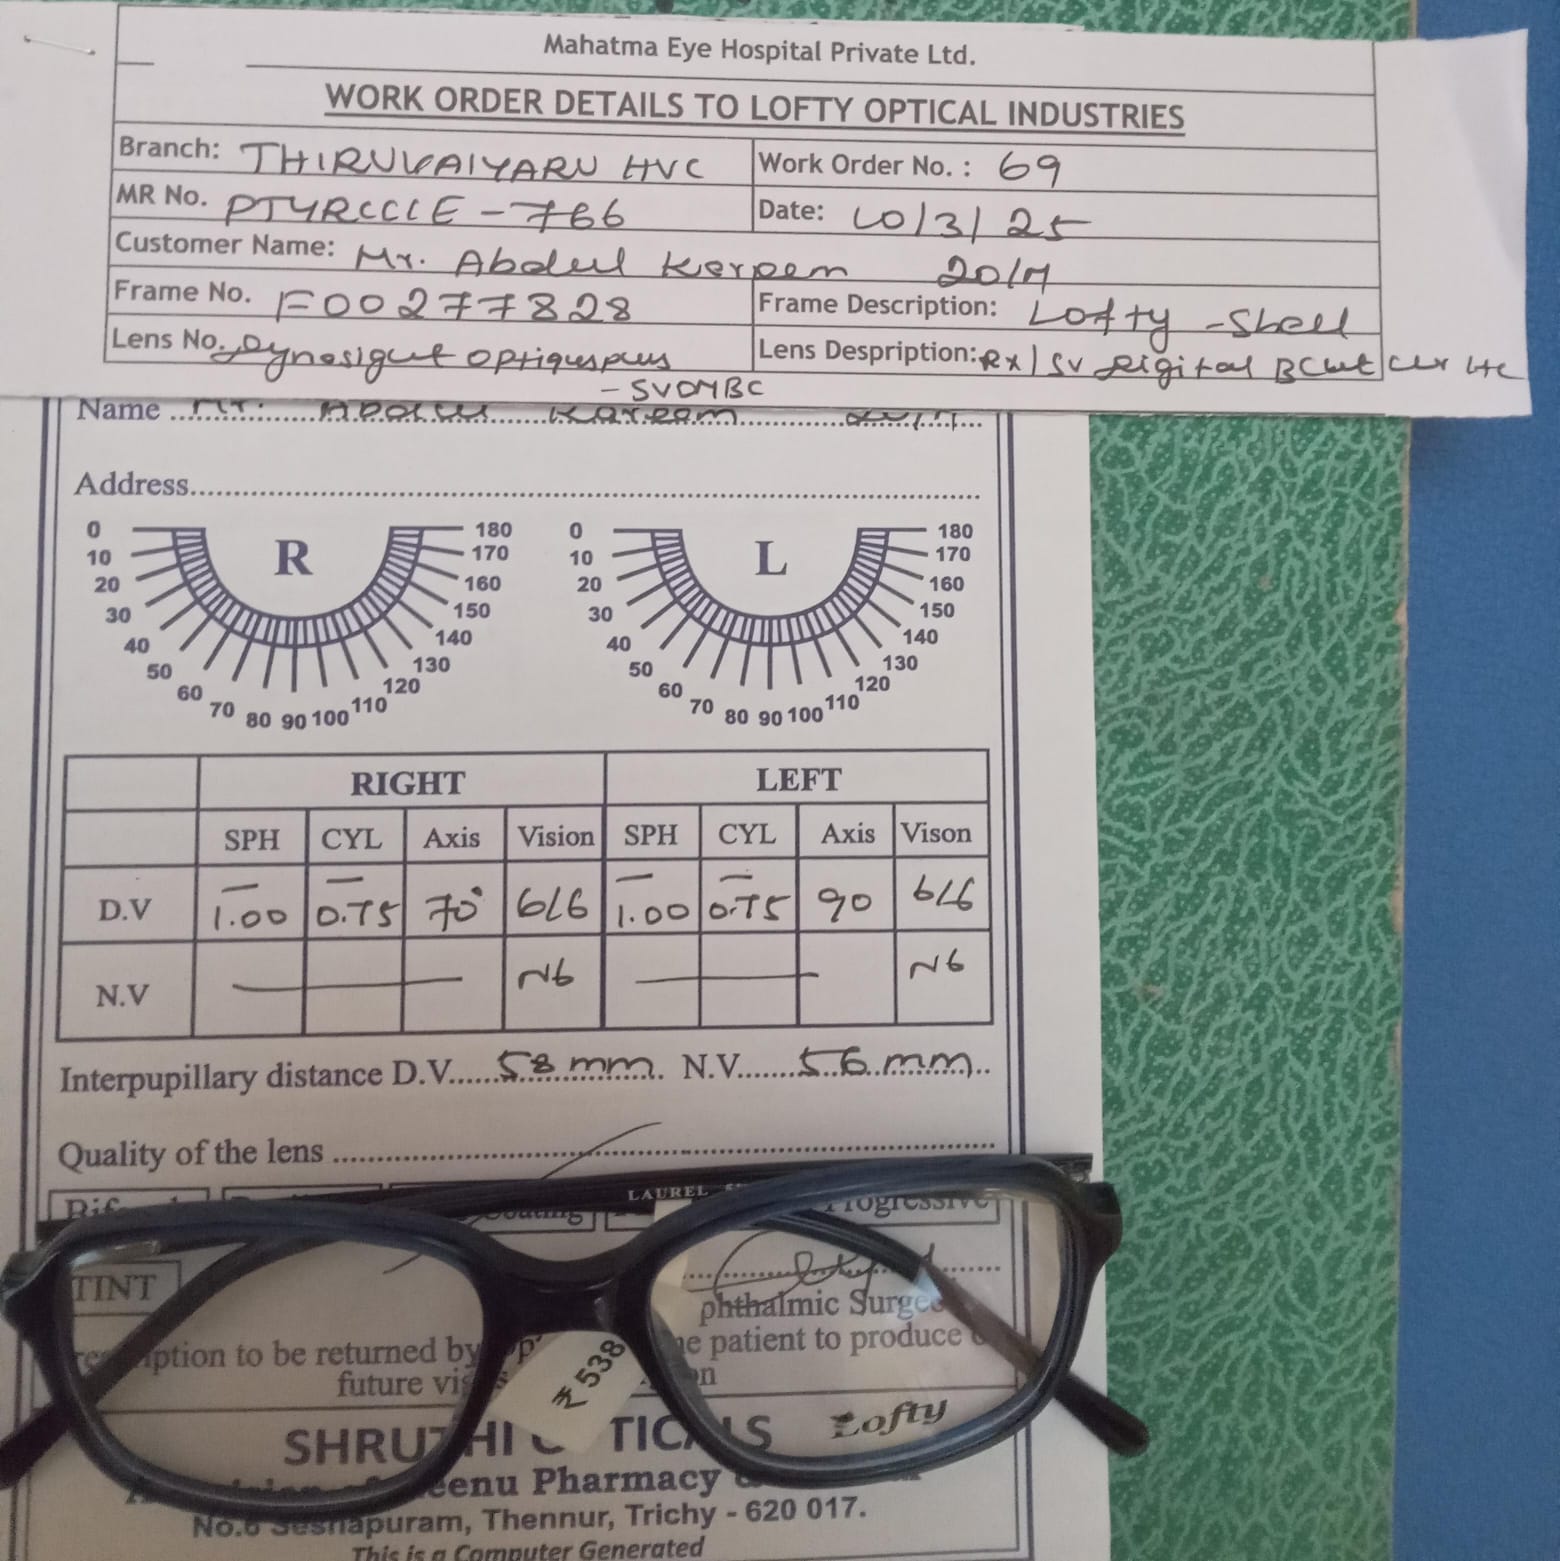 Mahatma Eye Hospital Private Ltd.
WORK ORDER DETAILS TO LOFTY OPTICAL INDUSTRIES
Branch: THIRUVAIYARU HVC Work Order No. : 69
MR No. Date: 10/3/25
Customer Name: Mr. Abdul Kareem 20/M
Frame No. F00277828 Frame Description: Lofty - Shell
Lens No. Lens Despription: RX/SV Digital
- SVDMBC
Name Mr. Abdul Kareem
Address
0 R 180 0 L 180
10 170 10 170
20 160 20 160
30 150 30 150
40 140 40 140
50 130 50 130
60 120 60 120
70 110 70 110
80 90 100 80 90 100
RIGHT LEFT
SPH CYL Axis Vision SPH CYL Axis Vison
D.V -1.00 -0.75 70° 6/6 -1.00 -0.75 90 6/6
N.V — N6 — N6
Interpupillary distance D.V. 58 mm. N.V. 56 mm
Quality of the lens
LAUREL
Progressive
TINT
phthalmic Surge
iption to be returned by he patient to produce
future vis
₹ 538
SHRUTHI OPTICALS Lofty
eenu Pharmacy
No.6 Seshapuram, Thennur, Trichy - 620 017.
This is a Computer Generated